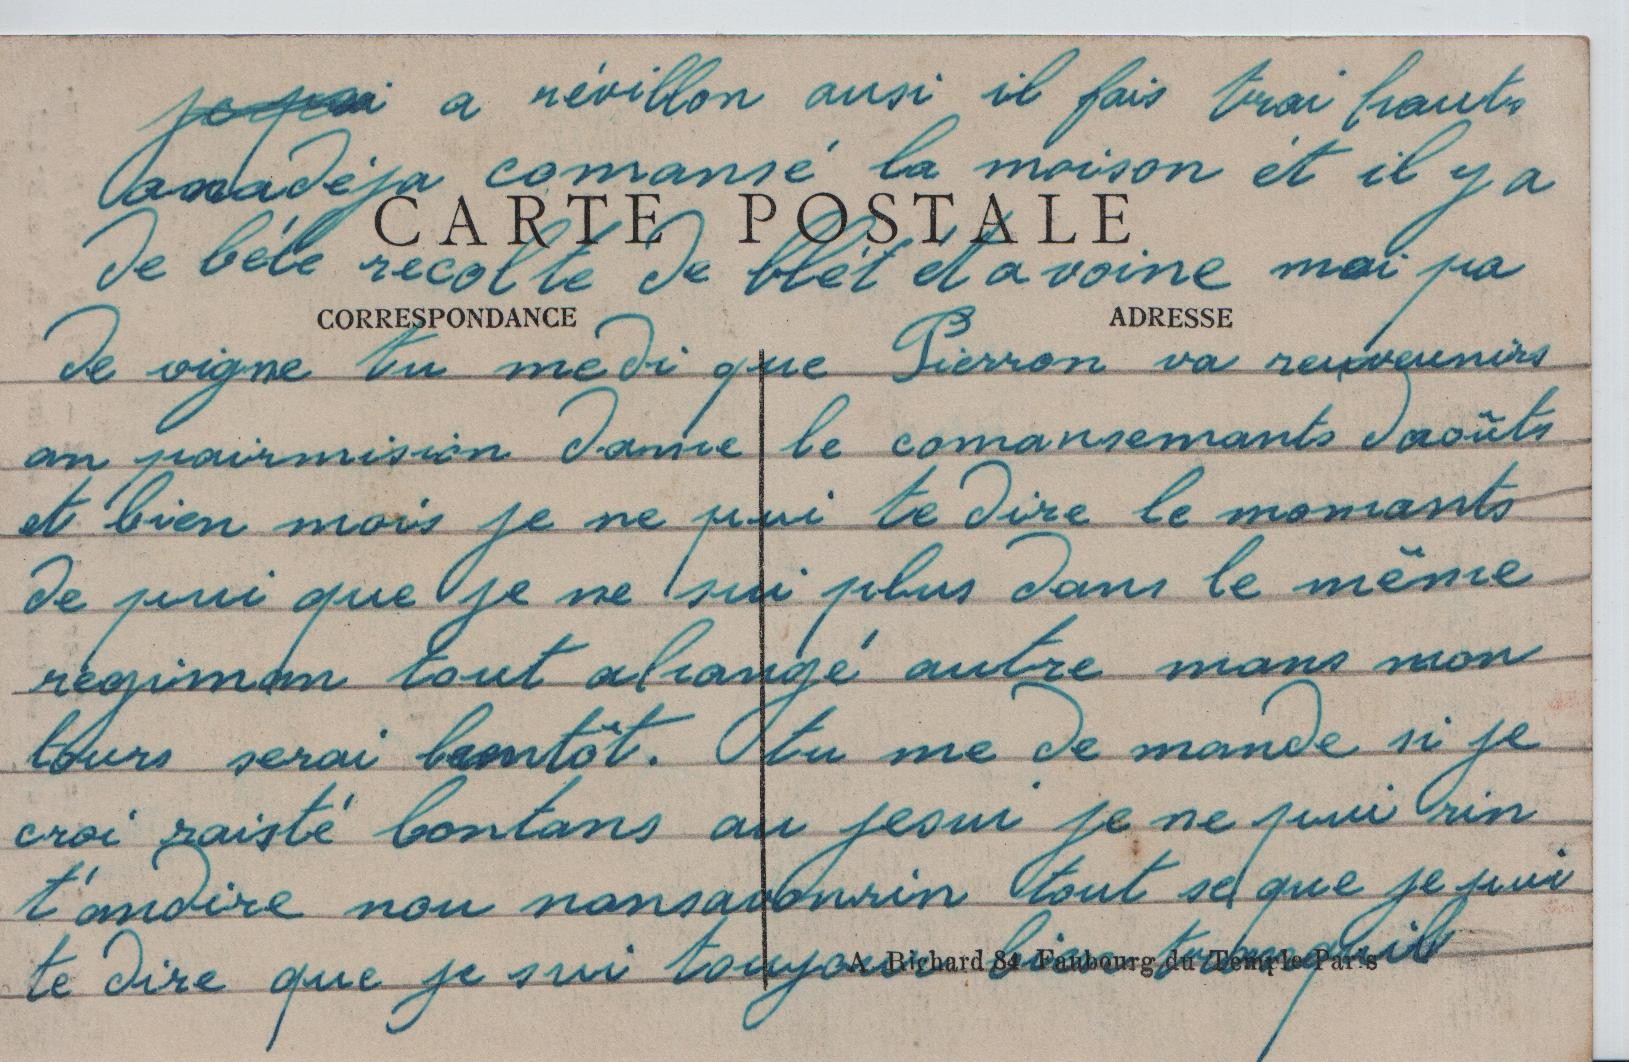 a révillon ausi il fais trai hauts
anadéja comansé la moison ét il y a
CARTE POSTALE
de béle recolte de blét et avoine mai pa
CORRESPONDANCE
ADRESSE
de vigne tu me di que Pierron va reuveunirs
an pairmision danse le comansemants daoûts
et bien mois je ne pui te dire le momants
de pui que je ne sui plus dans le même
regiman tout a changé autre mans mon
tours serai bentôt. tu me de mande si je
croi raisté lontans au jesui je ne pui rin
t'andire nou nonsavonrin tout se que je pui
te dire que je sui toujour bien tranquil
A Richard 84 Faubourg du Temple Paris